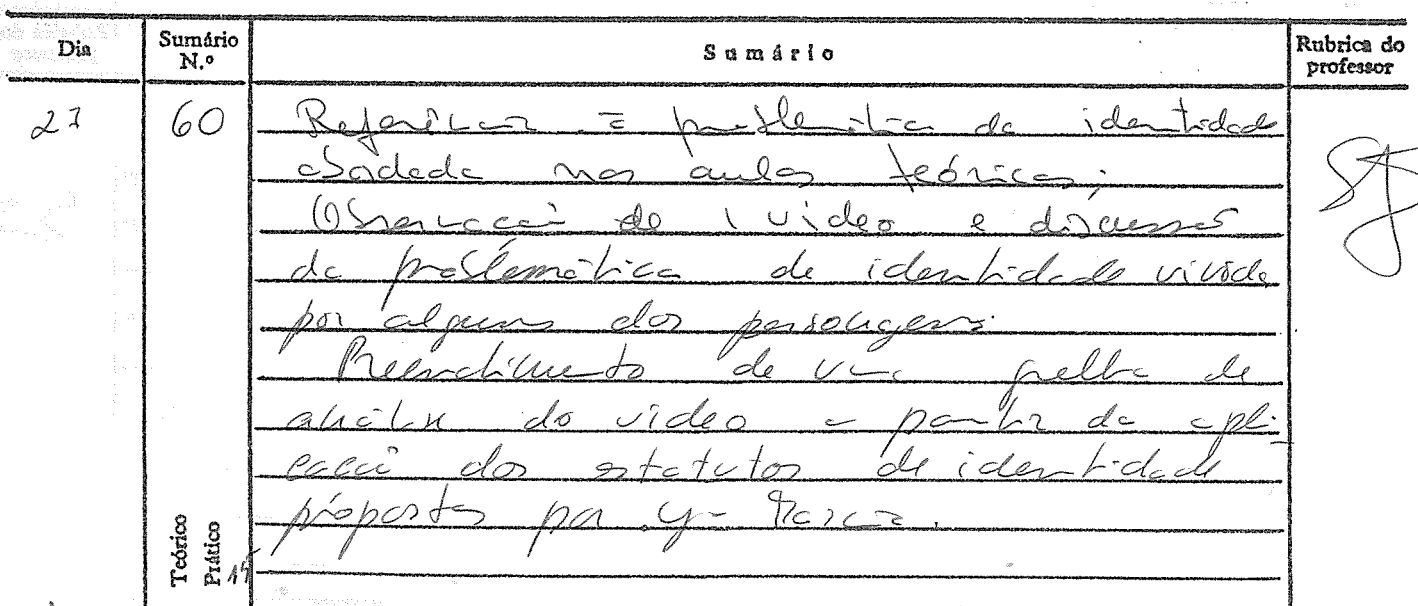 Dia
Sumário N.º
Sumário
Rubrica do professor
27
60
Referência à problemática da identidade
abordada nas aulas teóricas;
Observação de 1 video e discussão
da problemática de identidade vivida
por alguns dos personagens.
Preenchimento de uma grelha de
análise do video a partir da apli-
cação dos estatutos de identidade
propostos por
Teórico
Prático
15